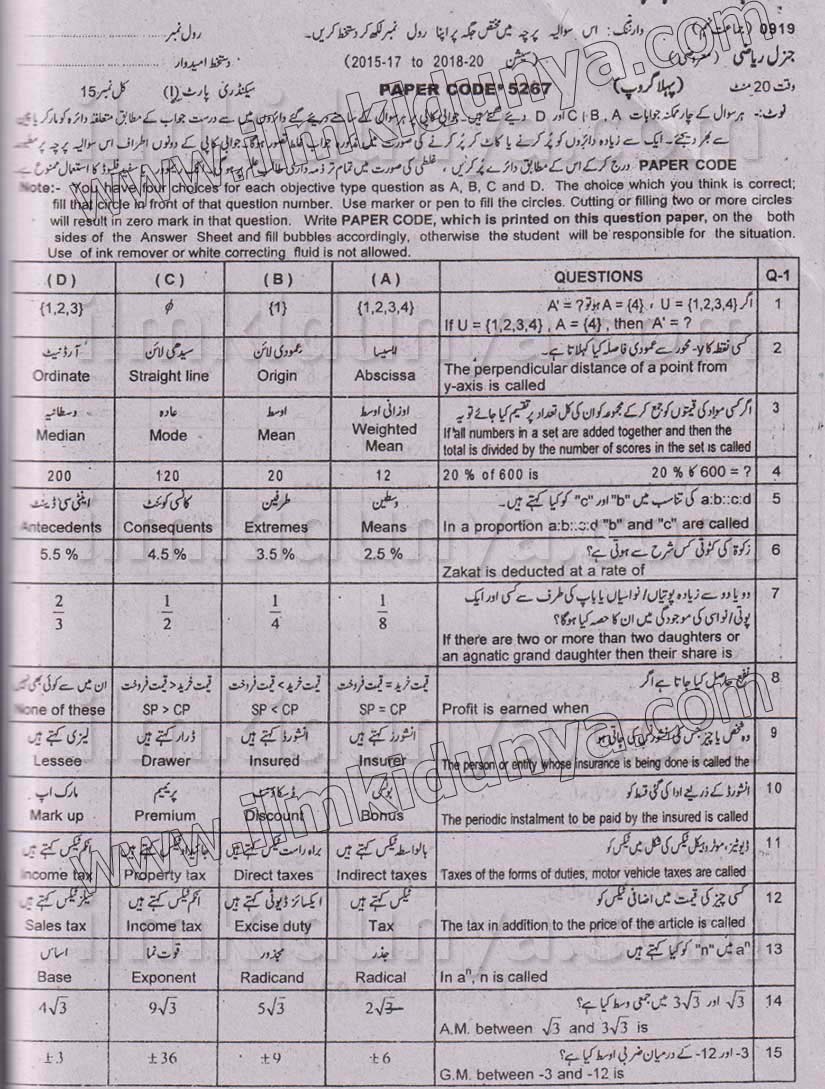 0919 (جماعت نہم) وارننگ: اس سوالیہ پرچہ میں مختص جگہ پر اپنا رول نمبر لکھ کر دستخط کریں۔ رول نمبر
جنرل ریاضی (معروضی) (سیشن 2015-17 to 2018-20) دستخط امیدوار
وقت 20 منٹ (پہلا گروپ) PAPER CODE 5267 سیکنڈری پارٹ (I) کل نمبر 15
نوٹ:- ہر سوال کے چار ممکنہ جوابات A ، B ، C اور D دیئے گئے ہیں۔ جوابی کاپی پر ہر سوال کے سامنے دیئے گئے دائروں میں سے درست جواب کے مطابق متعلقہ دائرہ کو مارکر یا پین
سے بھر دیجئے۔ ایک سے زیادہ دائروں کو پُر کرنے یا کاٹ کر پُر کرنے کی صورت میں مذکورہ جواب غلط تصور ہوگا۔ جوابی کاپی کے دونوں اطراف اس سوالیہ پرچہ پر
PAPER CODE درج کر کے اس کے مطابق دائرے پُر کریں، غلطی کی صورت میں تمام تر ذمہ داری طالب علم پر ہوگی۔ فلیوڈ کا استعمال ممنوع ہے
Note:- You have four choices for each objective type question as A, B, C and D. The choice which you think is correct;
fill that circle in front of that question number. Use marker or pen to fill the circles. Cutting or filling two or more circles
will result in zero mark in that question. Write PAPER CODE, which is printed on this question paper, on the both
sides of the Answer Sheet and fill bubbles accordingly, otherwise the student will be responsible for the situation.
Use of ink remover or white correcting fluid is not allowed.
(D) (C) (B) (A) QUESTIONS Q-1
{1,2,3} ϕ {1} {1,2,3,4} اگر U = {1,2,3,4} ، A = {4} ہو تو A' = ? 1
If U = {1,2,3,4} , A = {4} , then A' = ?
آرڈینیٹ سیدھی لائن عمودی لائن ایبسیسا کسی نقطہ کا y- محور سے عمودی فاصلہ کیا کہلاتا ہے۔ 2
Ordinate Straight line Origin Abscissa The perpendicular distance of a point from
y-axis is called
وسطانیہ عادہ اوسط اوزانی اوسط اگر کسی مواد کی قیمتوں کو جمع کر کے مجموعہ کو ان کی کل تعداد پر تقسیم کیا جائے تو یہ 3
Median Mode Mean Weighted Mean If all numbers in a set are added together and then the
total is divided by the number of scores in the set is called
200 120 20 12 20 % of 600 is 20 % کا 600 = ? 4
اینٹی سی ڈینٹ کانسی کوئنٹ طرفین وسطین a:b::c:d کی تناسب میں "b" اور "c" کو کیا کہتے ہیں۔ 5
Antecedents Consequents Extremes Means In a proportion a:b::c:d "b" and "c" are called
5.5 % 4.5 % 3.5 % 2.5 % زکوٰۃ کی کٹوتی کس شرح سے ہوتی ہے؟ 6
Zakat is deducted at a rate of
2/3 1/2 1/4 1/8 دو یا دو سے زیادہ پوتیاں/نواسیاں یا باپ کی طرف سے کسی اور ایک 7
پوتی/نواسی کی موجودگی میں ان کا حصہ کیا ہوگا؟
If there are two or more than two daughters or
an agnatic grand daughter then their share is
ان میں سے کوئی بھی نہیں قیمت خرید > قیمت فروخت قیمت خرید < قیمت فروخت قیمت خرید = قیمت فروخت نفع حاصل کیا جاتا ہے اگر 8
None of these SP > CP SP < CP SP = CP Profit is earned when
لیزی کہتے ہیں ڈرار کہتے ہیں انشورڈ کہتے ہیں انشورر کہتے ہیں وہ شخص یا چیز جس کی انشورنس کی جاتی ہو 9
Lessee Drawer Insured Insurer The person or entity whose insurance is being done is called the
مارک اپ پریمیم ڈسکاؤنٹ بونس انشورڈ کے ذریعے ادا کی گئی قسط کو 10
Mark up Premium Discount Bonus The periodic instalment to be paid by the insured is called
انکم ٹیکس کہتے ہیں جائیداد ٹیکس کہتے ہیں براہ راست ٹیکس کہتے ہیں بالواسطہ ٹیکس کہتے ہیں ڈیوٹیز، موٹر وہیکل ٹیکس کی شکل میں ٹیکس کو 11
Income tax Property tax Direct taxes Indirect taxes Taxes of the forms of duties, motor vehicle taxes are called
سیلز ٹیکس کہتے ہیں انکم ٹیکس کہتے ہیں ایکسائز ڈیوٹی کہتے ہیں ٹیکس کہتے ہیں کسی چیز کی قیمت میں اضافی ٹیکس کو 12
Sales tax Income tax Excise duty Tax The tax in addition to the price of the article is called
اساس قوت نما مجذور جذر aⁿ میں "n" کو کیا کہتے ہیں 13
Base Exponent Radicand Radical In aⁿ, n is called
4√3 9√3 5√3 2√3 √3 اور 3√3 میں جمعی وسط کیا ہے؟ 14
A.M. between √3 and 3√3 is
±3 ±36 ±9 ±6 -3 اور -12 کے درمیان ضربی اوسط کیا ہے؟ 15
G.M. between -3 and -12 is
www.ilmkidunya.com
www.ilmkidunya.com
ilmkidunya.com